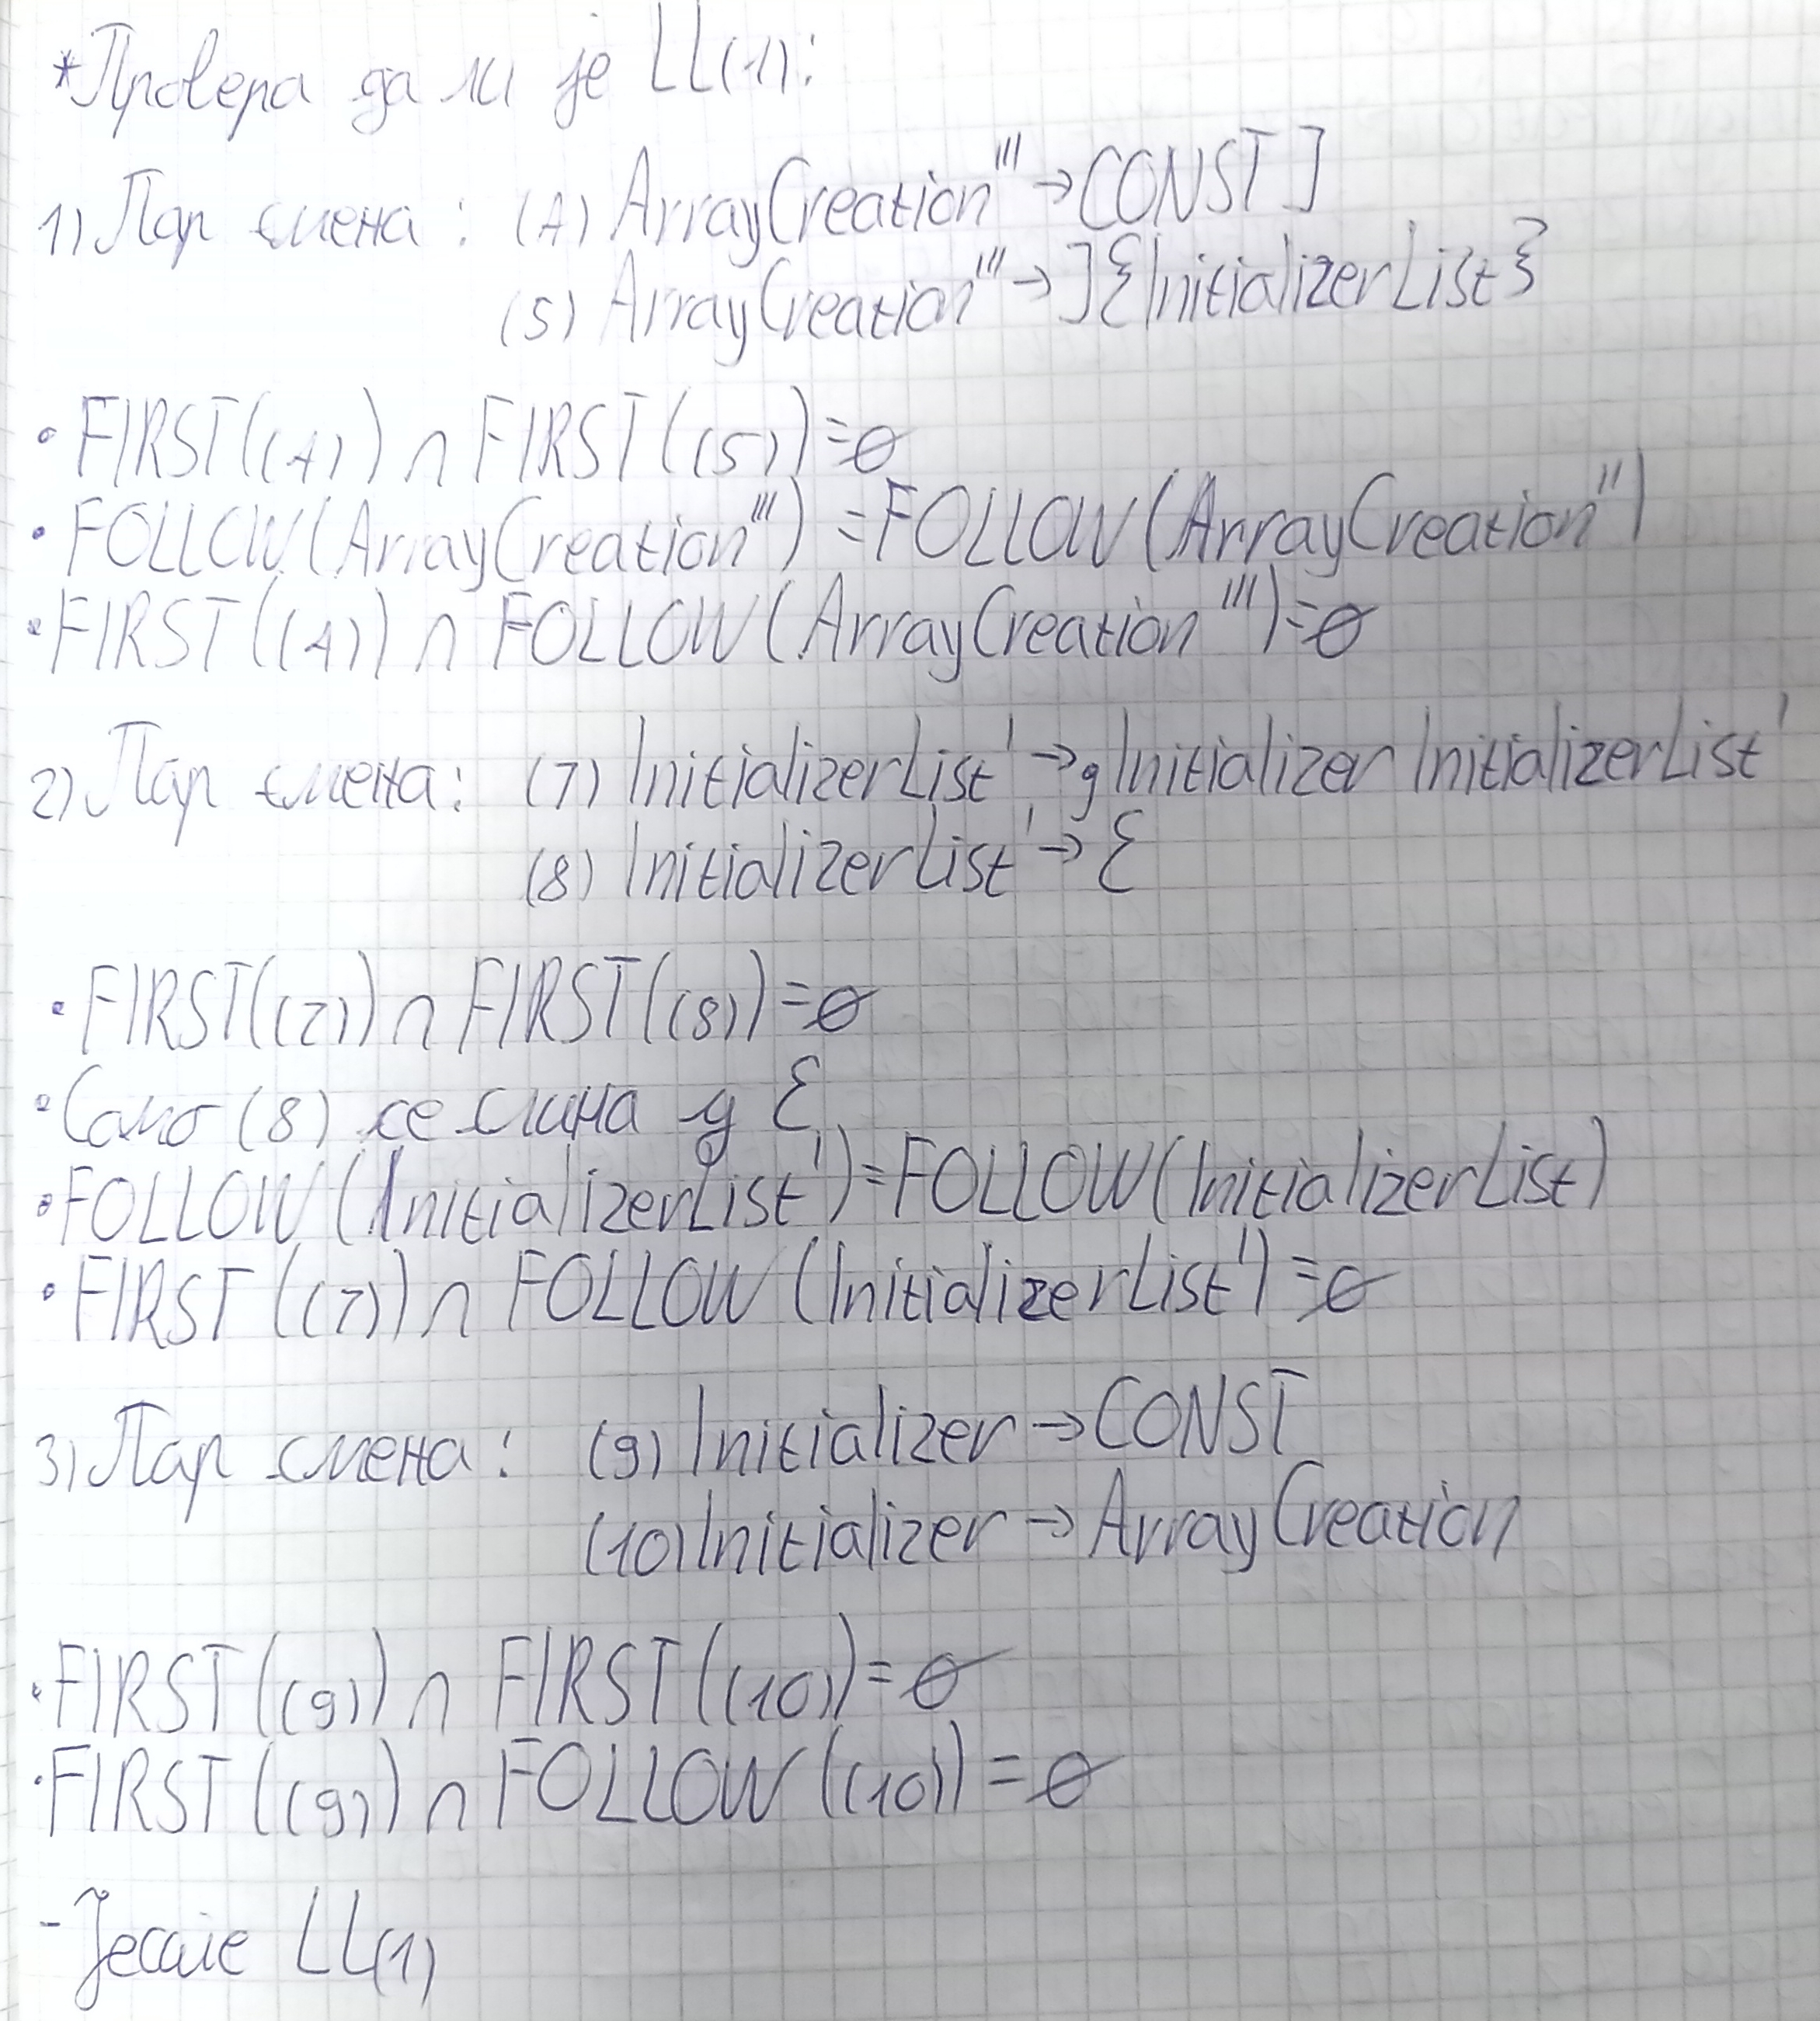 *Провера да ли је LL(1):
1) Пар смена: (4) ArrayCreation''' → CONST ]
(5) ArrayCreation''' → ]{InitializerList}
• FIRST((4)) ∩ FIRST((5)) = ∅
• FOLLOW(ArrayCreation''') = FOLLOW(ArrayCreation'')
• FIRST((4)) ∩ FOLLOW(ArrayCreation''') = ∅
2) Пар смена: (7) InitializerList' → , Initializer InitializerList'
(8) InitializerList' → ε
• FIRST((7)) ∩ FIRST((8)) = ∅
• Само (8) се слика у ε
• FOLLOW(InitializerList') = FOLLOW(InitializerList)
• FIRST((7)) ∩ FOLLOW(InitializerList') = ∅
3) Пар смена: (9) Initializer → CONST
(10) Initializer → ArrayCreation
• FIRST((9)) ∩ FIRST((10)) = ∅
• FIRST((9)) ∩ FOLLOW((10)) = ∅
- Јесте LL(1)